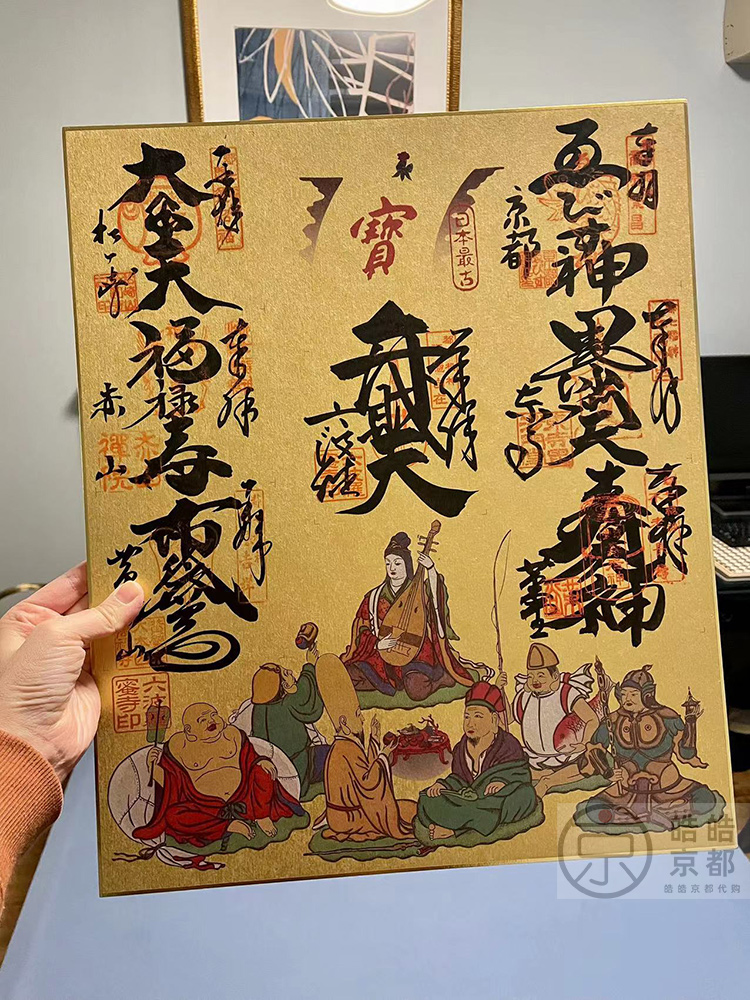 奉拝
ゑびす神
京都
奉拝
毘沙門天
東寺
奉拝
壽老神
革堂
寶
日本最古
奉拝
弁財天
六波羅
奉拝
大黒天
松ヶ崎
奉拝
福禄寿
赤山
禪院
奉拝
布袋尊
黄檗山
六波羅
蜜寺印
京
皓皓
京都
皓皓京都代购